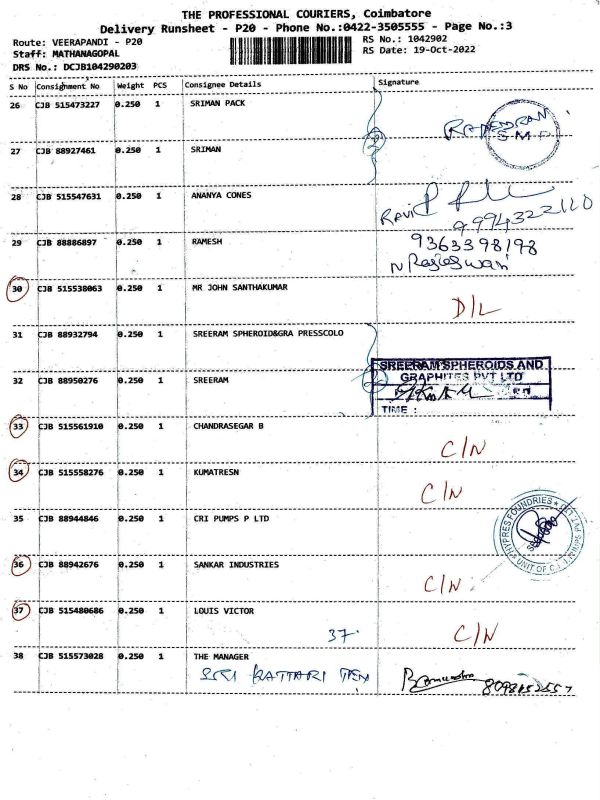 THE PROFESSIONAL COURIERS, Coimbatore
Delivery Runsheet - P20 - Phone No.:0422-3505555 - Page No.:3
Route: VEERAPANDI - P20
RS No.: 1042902
Staff: MATHANAGOPAL
RS Date: 19-Oct-2022
DRS No.: DCJB104290203
S No Consignment No Weight PCS Consignee Details Signature
26 CJB 515473227 0.250 1 SRIMAN PACK
RAJENDRAN
S.M.P
27 CJB 88927461 0.250 1 SRIMAN
28 CJB 515547631 0.250 1 ANANYA CONES
Ravi
9994322110
29 CJB 88886897 0.250 1 RAMESH
9363398198
N Rajeswari
30 CJB 515538063 0.250 1 MR JOHN SANTHAKUMAR
D/L
31 CJB 88932794 0.250 1 SREERAM SPHEROID&GRA PRESSCOLO
32 CJB 88950276 0.250 1 SREERAM
SREERAM SPHEROIDS AND
GRAPHITES PVT LTD
TIME :
33 CJB 515561910 0.250 1 CHANDRASEGAR B
C/N
34 CJB 515558276 0.250 1 KUMATRESN
C/N
35 CJB 88944846 0.250 1 CRI PUMPS P LTD
HYPRES FOUNDRIES
UNIT OF C.
36 CJB 88942676 0.250 1 SANKAR INDUSTRIES
C/N
37 CJB 515480686 0.250 1 LOUIS VICTOR
37.
C/N
38 CJB 515573028 0.250 1 THE MANAGER
SRI KATTARI TEX